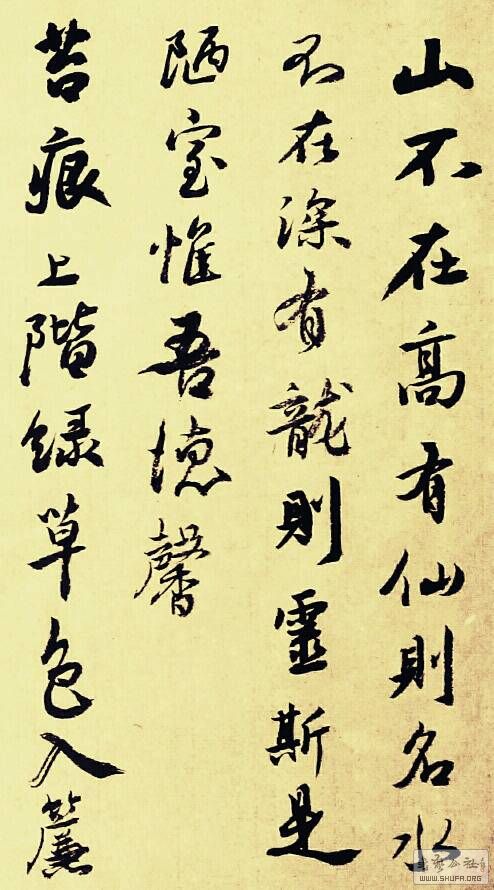 山不在高有仙則名水
不在深有龍則靈斯是
陋室惟吾德馨
苔痕上階緑草色入簾
WWW.SHUFA.ORG